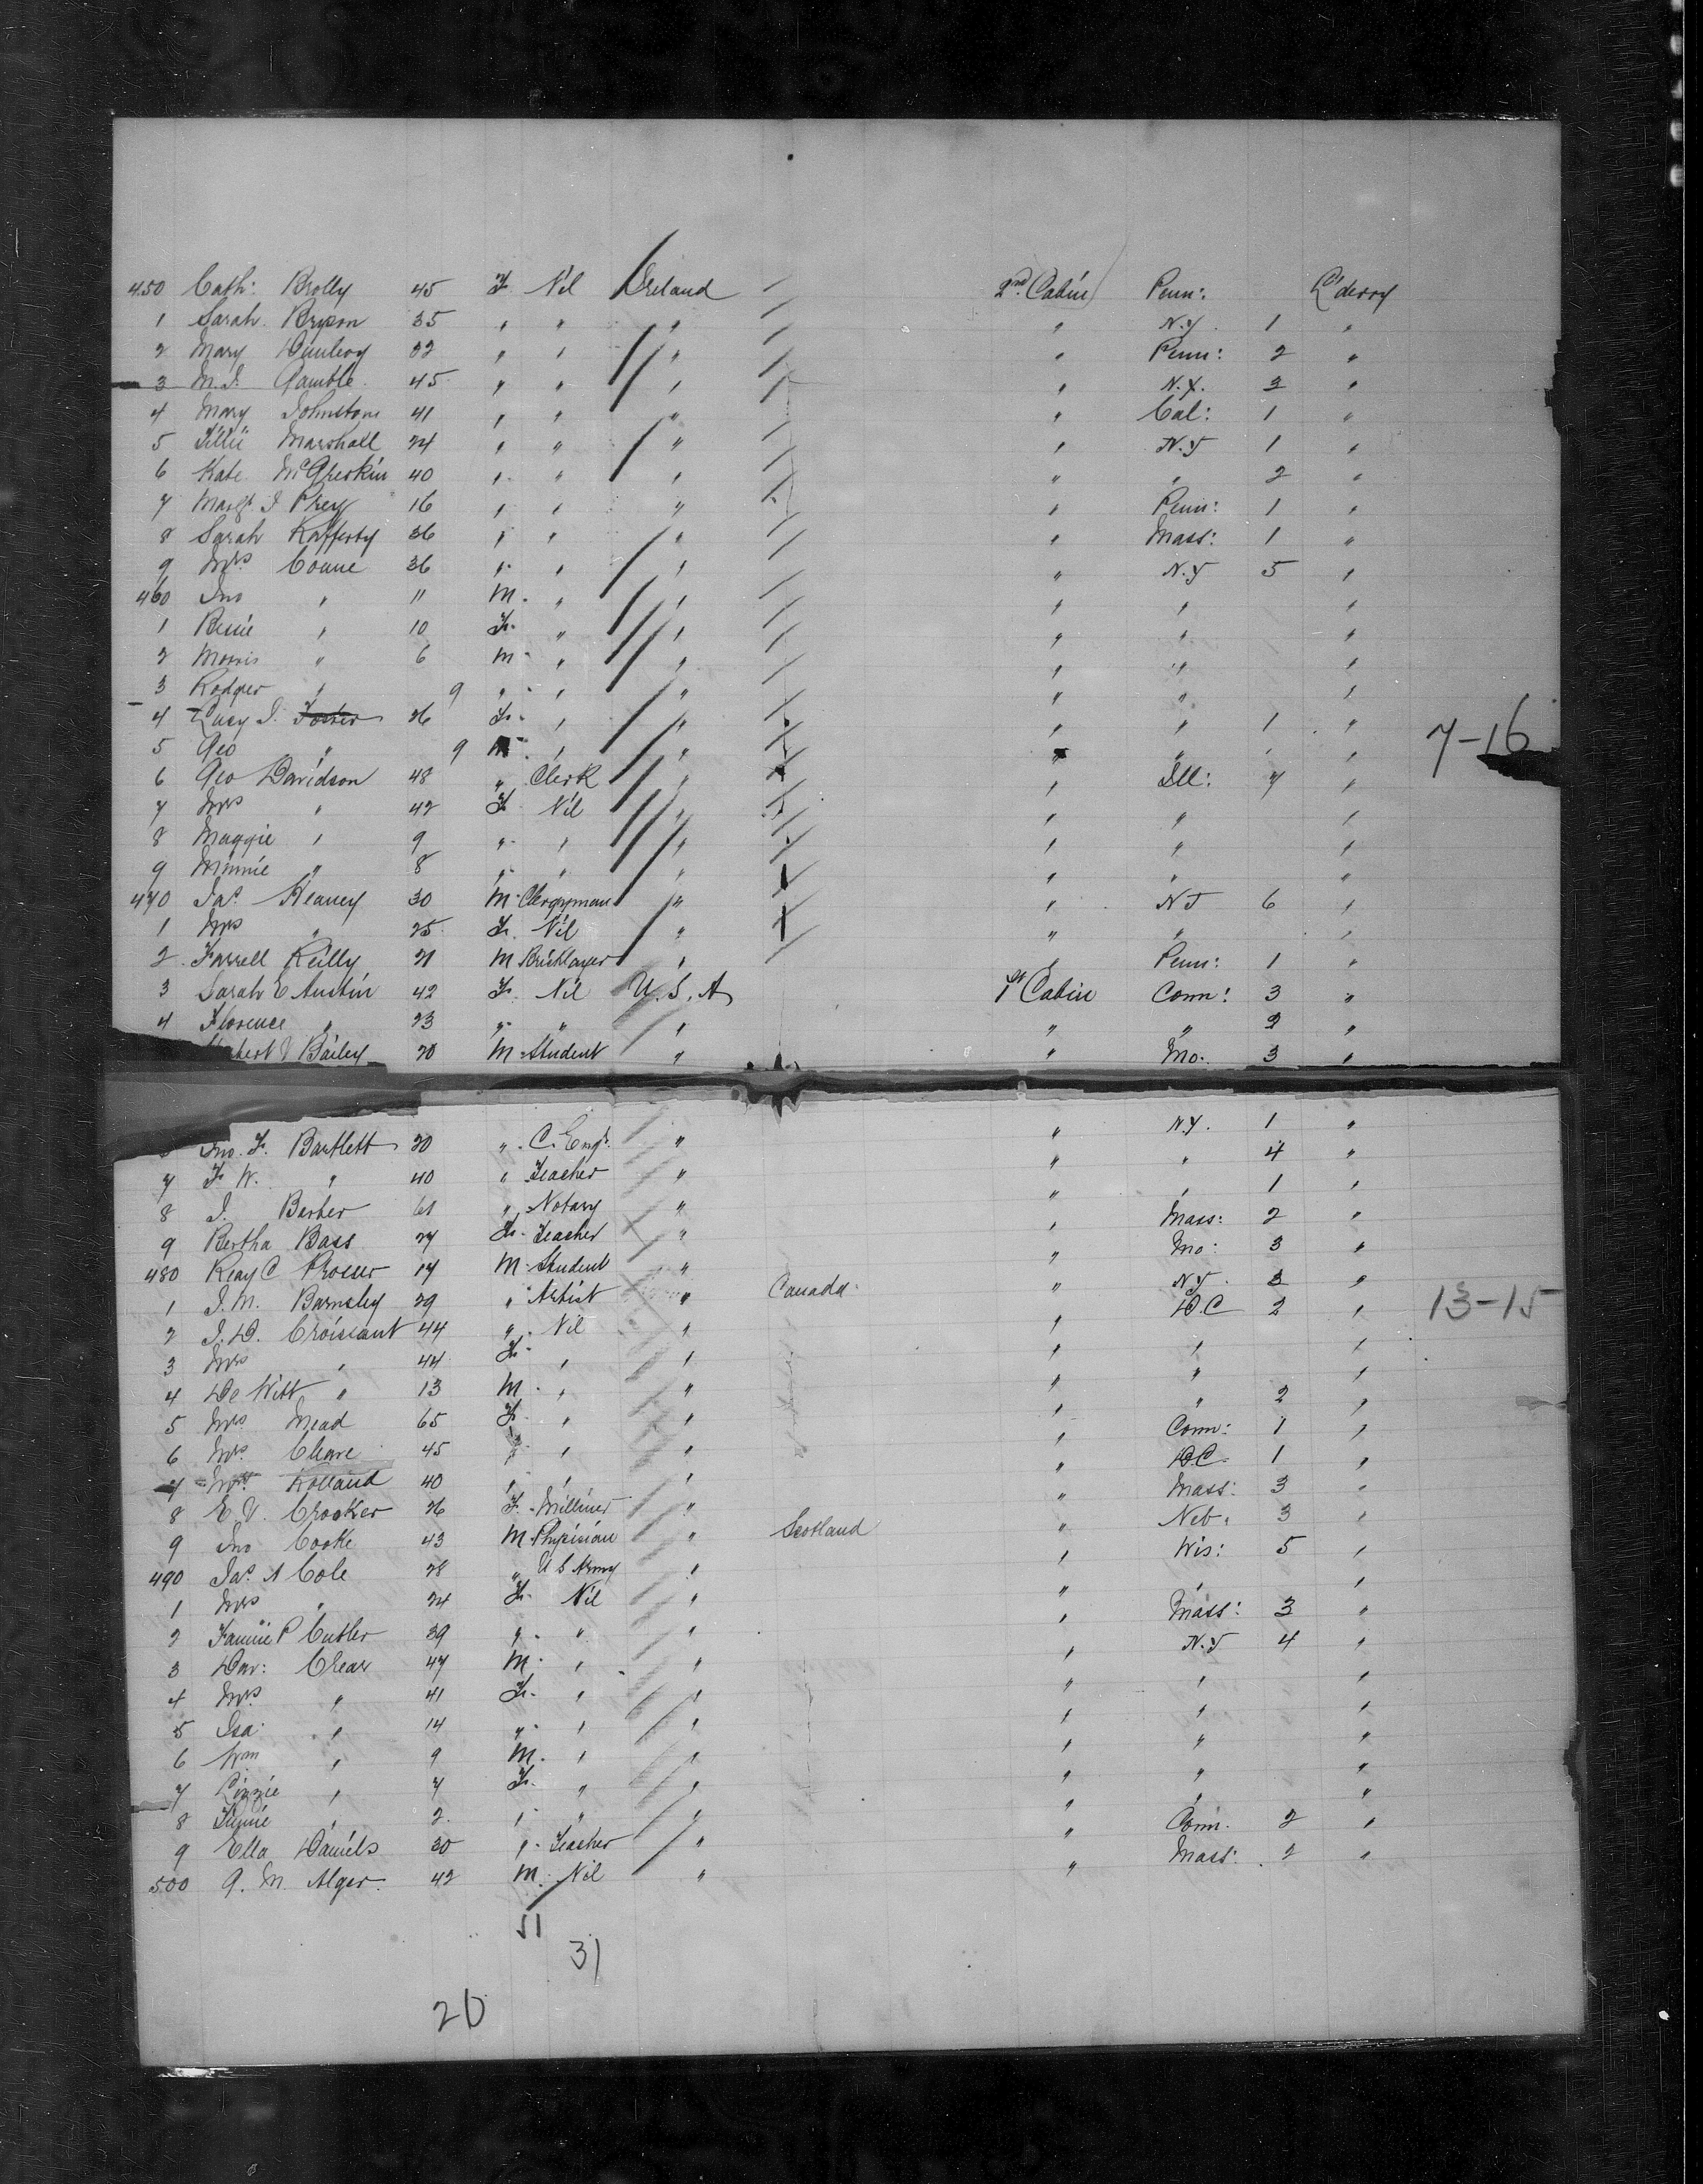 450 Cath: Brolly 45 F. Nil Ireland 2nd Cabin Penn: L'derry
1 Sarah Bryson 35 " " " " N.Y. 1 "
2 Mary 22 " " " " Penn: 2 "
3 M.J. Gamble 45 " " " " N.Y. 3 "
4 Mary Johnston 41 " " " " Cal: 1 "
5 Tillie Marshall 24 " " " " N.Y 1 "
6 Kate McGherkin 40 " " " " " 2 "
7 Margt J Prey 16 " " " " Penn: 1 "
8 Sarah Rafferty 36 " " " " Mass: 1 "
9 Mrs Coane 36 " " " " N.Y 5 "
460 Jno " 11 M. " " " " "
1 Bessie " 10 F. " " " " "
2 Morris " 6 M. " " " " "
3 Rodger " 9 " " " " " "
4 Lucy J. Foster 26 F. " " " " 1 "
5 Geo " 9 M. " " " " "
6 Geo Davidson 48 " Clerk " " Ill: 4 "
7 Mrs " 42 F. Nil " " " "
8 Maggie " 9 " " " " " "
9 Minnie " 8 " " " " " "
470 Jas. Heaney 30 M. Clergyman " " NJ 6 "
1 Mrs " 25 F. Nil " " " "
2 Farrell Reilly 21 M Bricklayer " " Penn: 1 "
3 Sarah E Austin 42 F. Nil U.S.A 1st Cabin Conn: 3 "
4 Florence " 23 " " " " " 2 "
Bailey 20 M. Student " " Mo. 3 "
Jno. F. Bartlett 20 " C. Engr. " " N.Y. 1 "
7 F. W. " 40 " Teacher " " " 4 "
8 J. Barber 61 " Notary " " " 1 "
9 Bertha Bass 27 F. Teacher " " Mass: 2 "
480 Reay C Prosser 17 M. Student " " Mo: 3 "
1 J.M. Barnsley 29 " Artist " Canada " N.Y. 3 "
2 J.D. Croissant 44 " Nil " " D.C 2 "
3 Mrs " 44 F. " " " " "
4 De Witt " 13 M. " " " " "
5 Mrs Mead 65 F. " " " " 2 "
6 Mrs Cleave 45 " " " " Conn: 1 "
7 Mrs Rolland 40 " " " " D.C. 1 "
8 E.V. Crooker 26 F. Milliner " " Mass: 3 "
9 Jno Cooke 43 M. Physician " Scotland " Neb: 3 "
490 Jas. A Cole 28 " U S Army " " Wis: 5 "
1 Mrs " 24 F. Nil " " " "
2 Fannie P Cutler 39 " " " " Mass: 3 "
3 Dav: Chear 47 M. " " " N.Y 4 "
4 Mrs. " 41 F. " " " " "
5 Isa: " 14 " " " " " "
6 Wm " 9 M. " " " " "
7 Lizzie " 7 F. " " " " "
8 " 2. " " " " " "
9 Ella Daniels 30 " Teacher " " Conn. 2 "
500 A. M. Alger 42 M. Nil " " Mass: 2 "
7-16
13-15
51
31
20